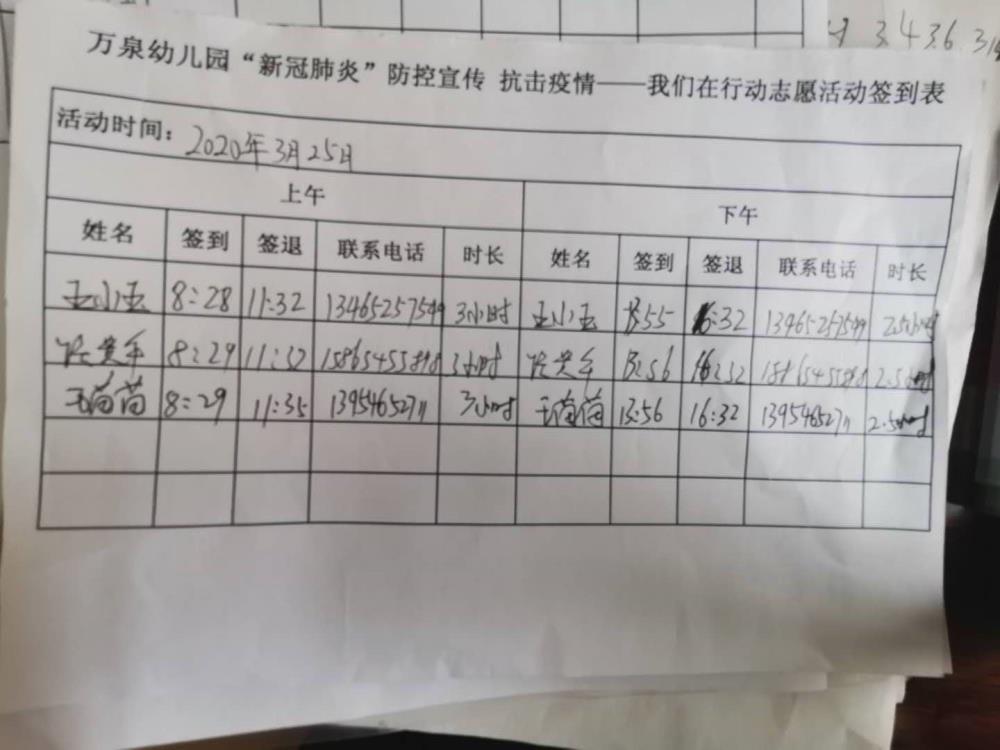 3.436.31
万泉幼儿园“新冠肺炎”防控宣传 抗击疫情——我们在行动志愿活动签到表
活动时间：2020年3月25日
上午 下午
姓名 签到 签退 联系电话 时长 姓名 签到 签退 联系电话 时长
王小玉 8:28 11:32 13465257599 3小时 王小玉 13:55 16:32 13465257599 2.5小时
8:29 11:32 3小时 13:56 16:32 2.5小时
王苗苗 8:29 11:35 1395465271 3小时 王苗苗 13:56 16:32 1395465271 2.5小时